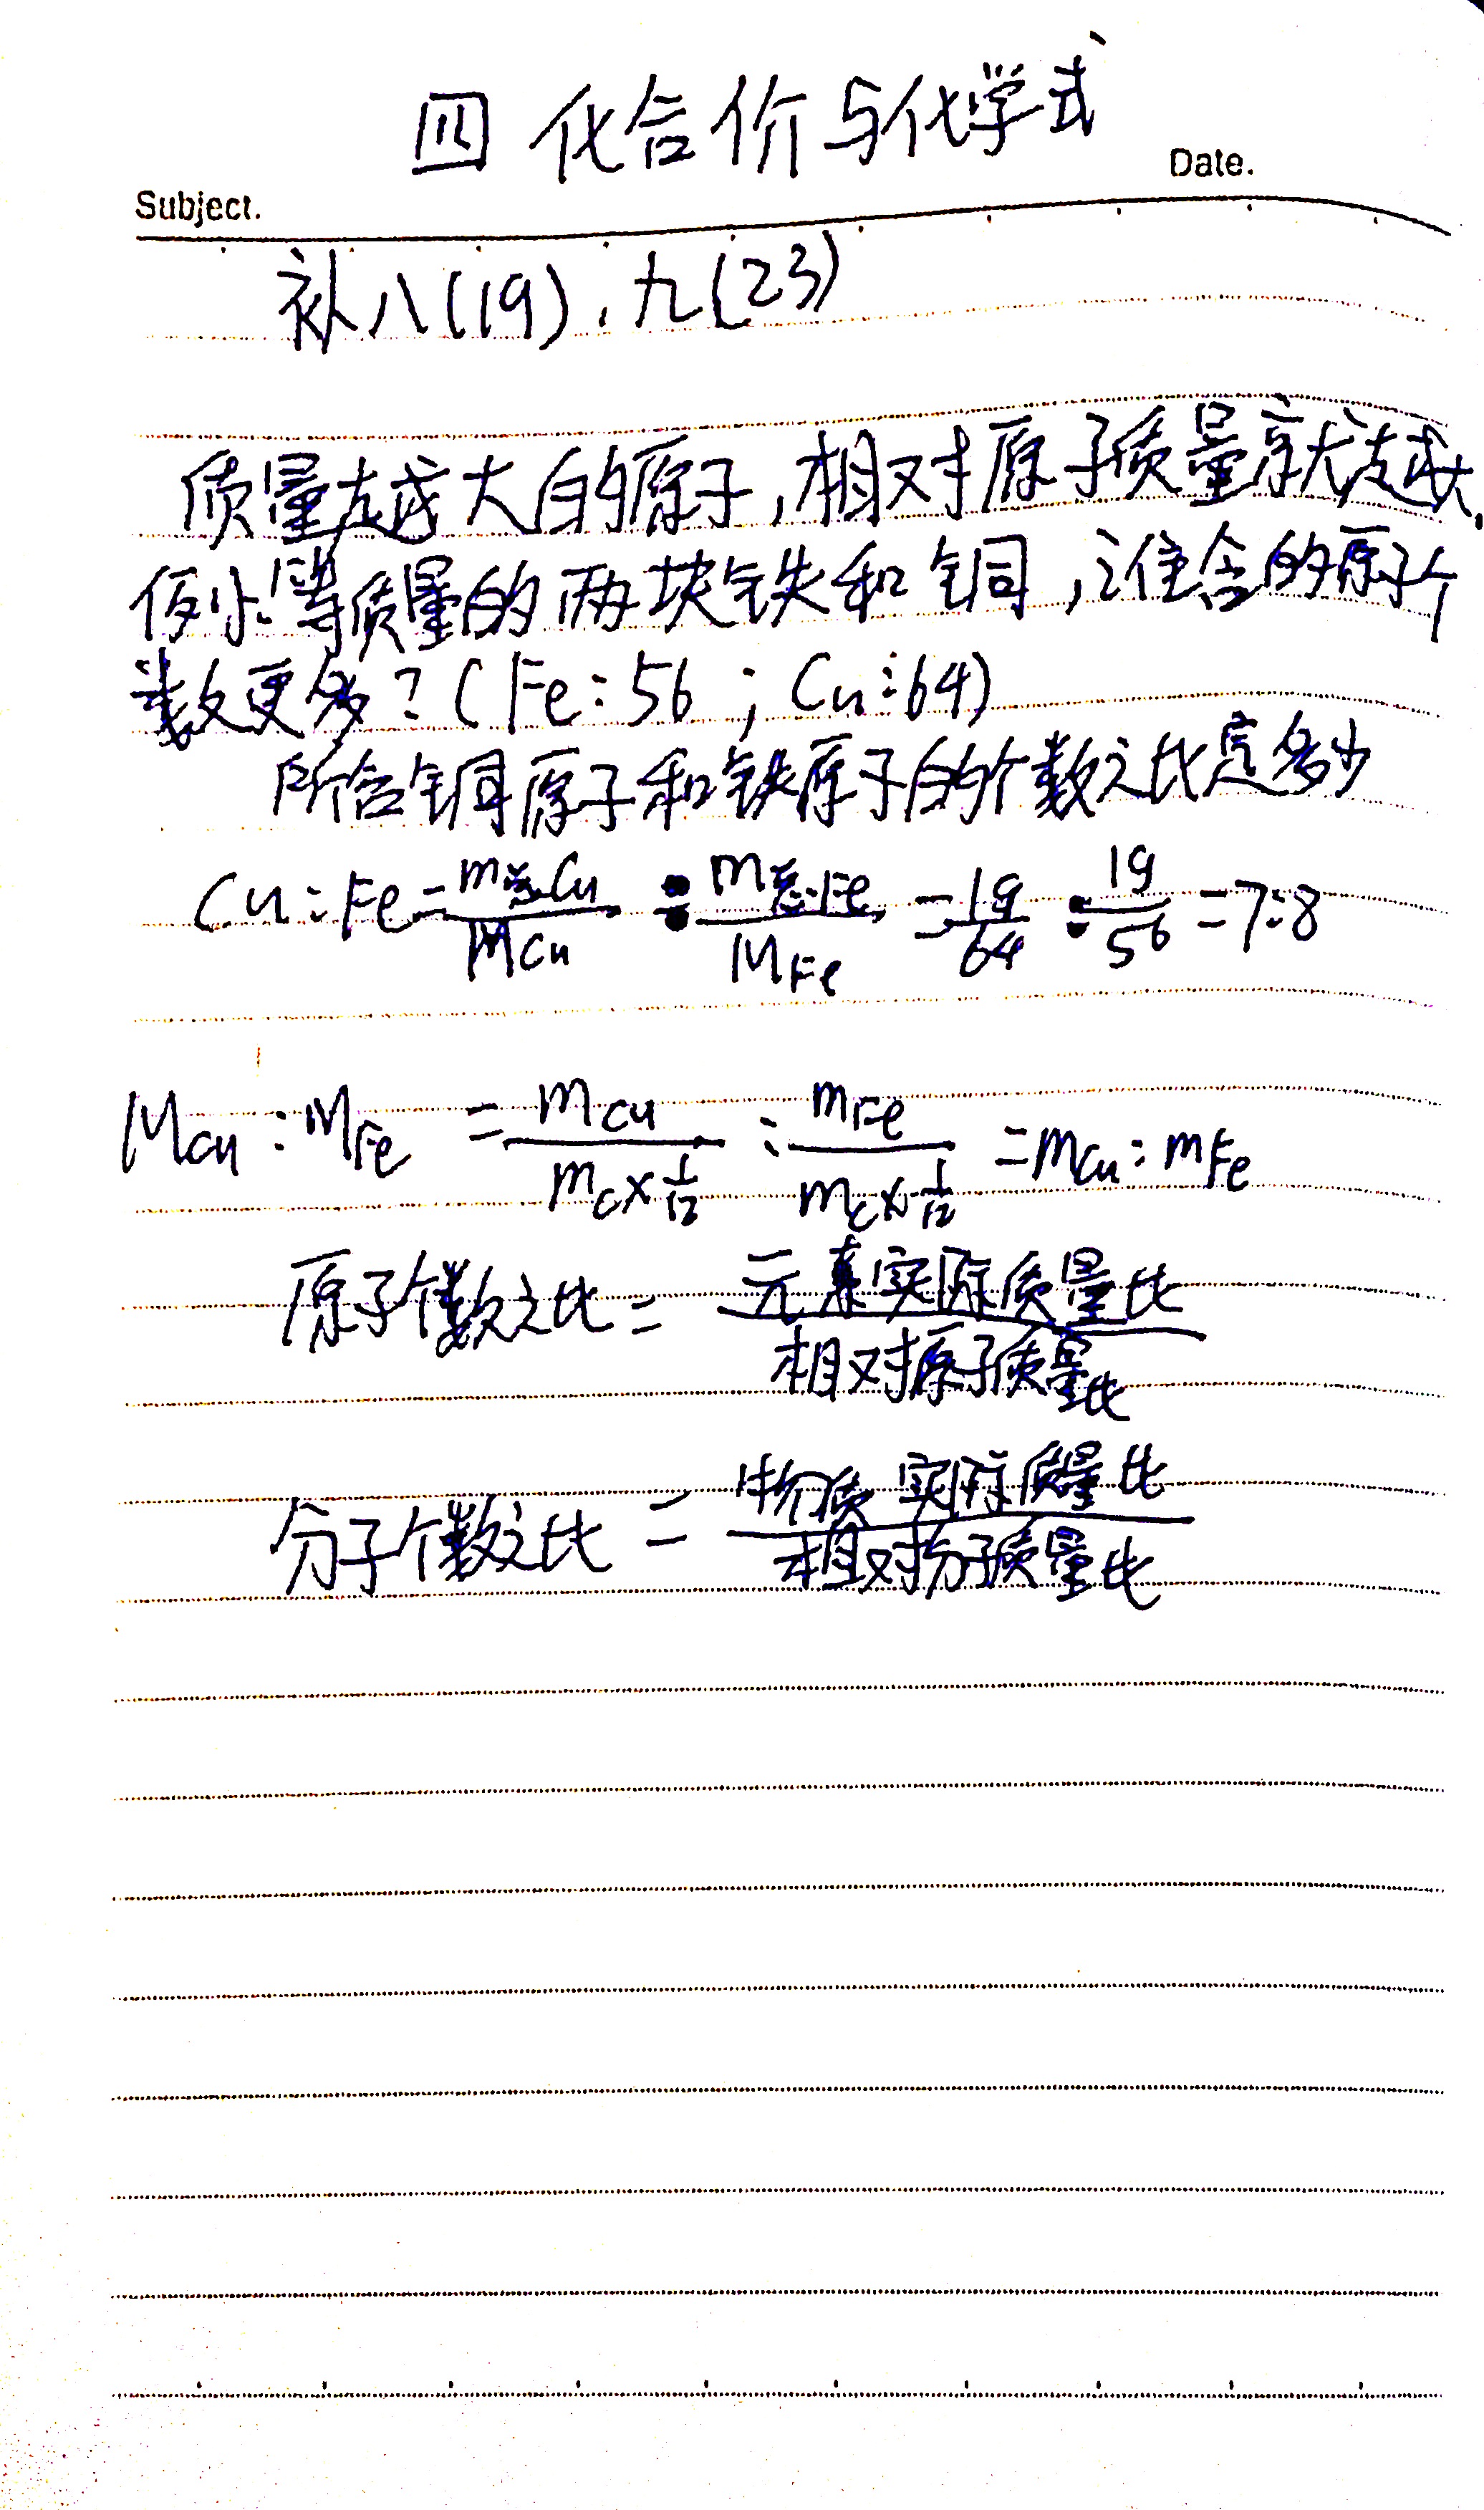 四 化合价与化学式
Date.
Subject.
补八(19),九(23)
质量越大的原子,相对原子质量就越大,
例:等质量的两块铁和铜,谁含的原子个
数更多?(Fe:56;Cu:64)
所含铜原子和铁原子的个数之比是多少
Cu:Fe=m总Cu/MCu : m总Fe/MFe =1g/64 : 1g/56 =7:8
MCu:MFe = mCu/mc×1/12 : mFe/mc×1/12 =mCu:mFe
原子个数之比= 元素实际质量比/相对原子质量比
分子个数之比 = 物质实际质量比/相对分子质量比